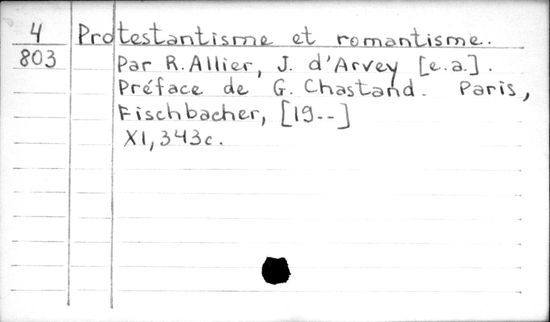 4 Protestantisme et romantisme.
803 Par R. Allier, J. d'Arvey [e.a.].
Préface de G. Chastand. Paris,
Fischbacher, [19--]
XI, 343c.